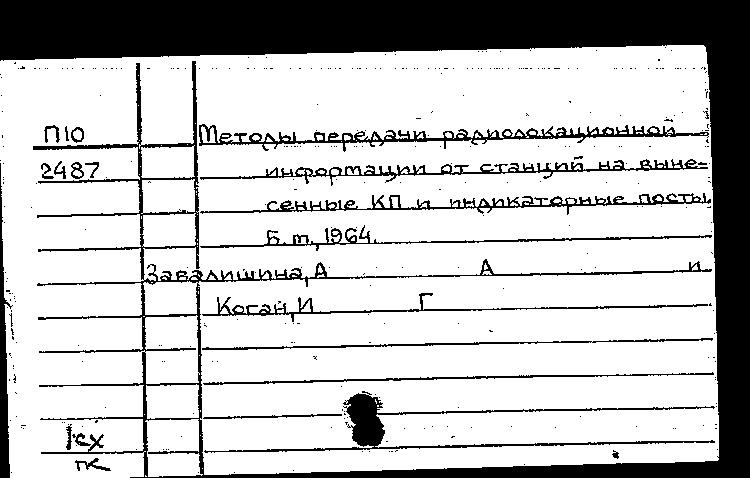 П10 Методы передачи радиолокационной
2487 информации от станций на выне=
сенные КП и индикаторные посты.
Б.m., 1964.
Завалишина, А А и
Коган, И Г
1сх
пк